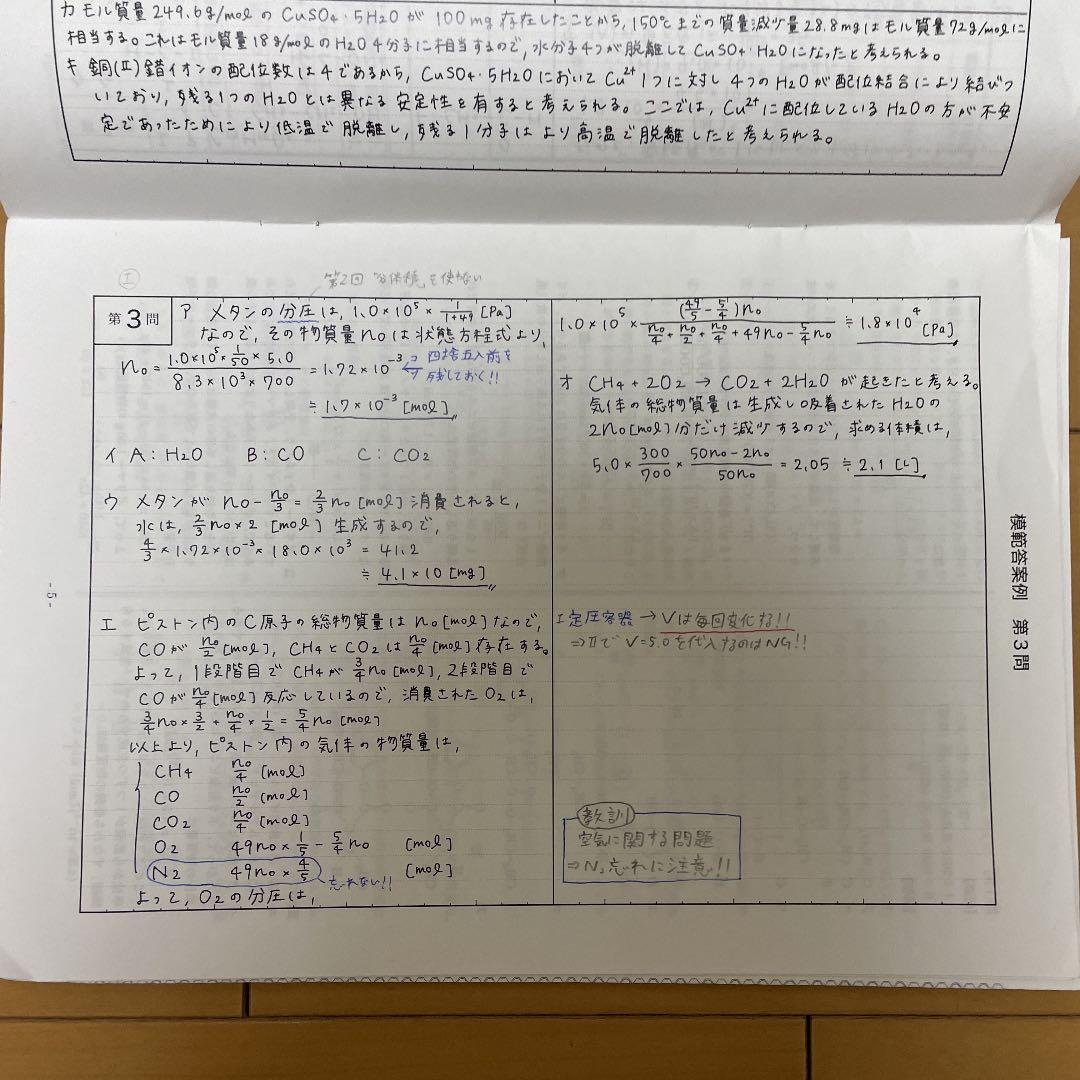 カ モル質量 249.6g/molの CuSO4・5H2O が 100mg存在したことから, 150℃までの質量減少量28.8mgはモル質量72g/molに
相当する。これはモル質量18g/molのH2O 4分子に相当するので, 水分子4つが脱離してCuSO4・H2Oになったと考えられる。
キ 銅(Ⅱ)錯イオンの配位数は4であるから, CuSO4・5H2OにおいてCu2+1つに対し4つのH2Oが配位結合により結びつ
いており, 残る1つのH2Oとは異なる安定性を有すると考えられる。ここでは, Cu2+に配位しているH2Oの方が不安
定であったためにより低温で脱離し, 残る1分子はより高温で脱離したと考えられる。
エ
第2回 を使わない
第3問
ア メタンの分圧は, 1.0×10^5×1/(1+49) [Pa]
なので, その物質量n0は状態方程式より,
n0=(1.0×10^5×1/50×5.0)/(8.3×10^3×700)=1.72×10^-3
四捨五入前を
残しておく!!
≒1.7×10^-3[mol]
イ A:H2O B:CO C:CO2
ウ メタンが n0-n0/3=2/3n0[mol]消費されると,
水は, 2/3n0×2 [mol] 生成するので,
4/3×1.72×10^-3×18.0×10^3=41.2
≒4.1×10[mg]
エ ピストン内のC原子の総物質量はn0[mol]なので,
COがn0/2[mol], CH4とCO2はn0/4[mol]存在する。
よって, 1段階目でCH4が3/4n0[mol], 2段階目で
COがn0/4[mol]反応しているので, 消費されたO2は,
3/4n0×3/2+n0/4×1/2=5/4n0[mol]
以上より, ピストン内の気体の物質量は,
CH4 n0/4[mol]
CO n0/2[mol]
CO2 n0/4[mol]
O2 49n0×1/5-5/4n0 [mol]
N2 49n0×4/5 [mol]
忘れない!!
よって, O2の分圧は,
1.0×10^5×((49/5-5/4)n0)/(n0/4+n0/2+n0/4+49n0-5/4n0)≒1.8×10^4[Pa]
オ CH4+2O2→CO2+2H2Oが起きたと考える。
気体の総物質量は生成し吸着されたH2Oの
2n0[mol]分だけ減少するので, 求める体積は,
5.0×300/700×(50n0-2n0)/50n0=2.05≒2.1[L]
エ 定圧容器→Vは毎回変化する!!
⇒ⅡでV=5.0を代入するのはNG!!
教訓
空気に関する問題
⇒N2忘れに注意!!
模範答案例 第3問
- 5 -